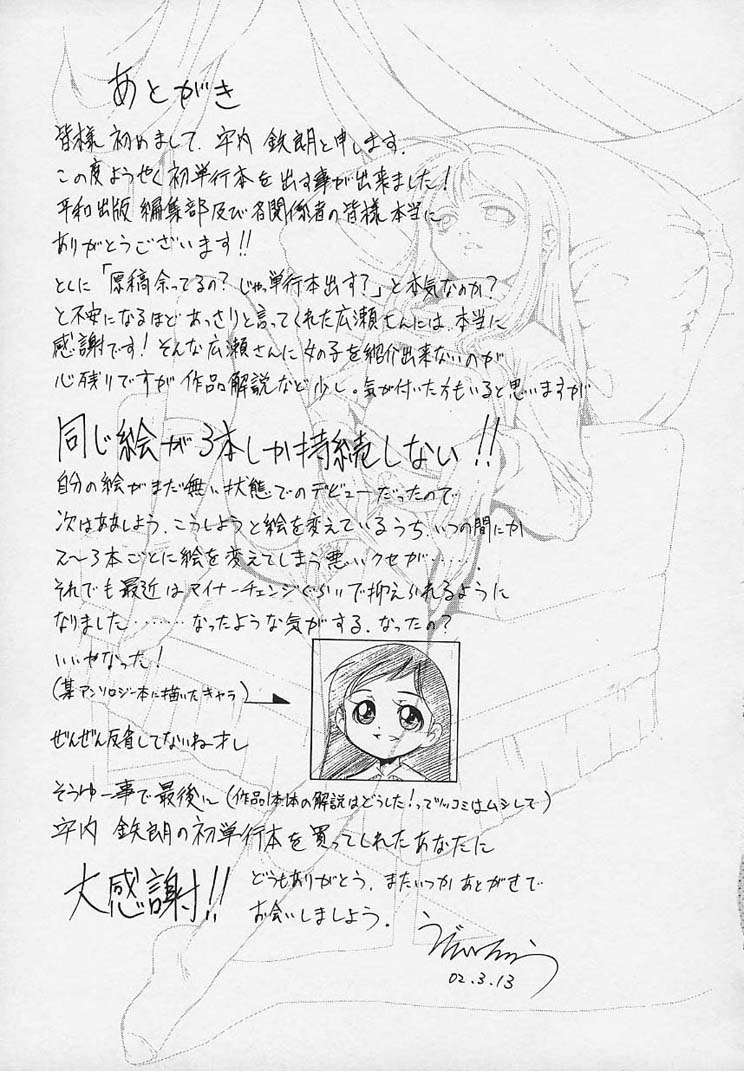 あとがき
皆様 初めまして、宇内 鉄朗と申します。
この度ようやく初単行本を出す事が出来ました!
平和出版 編集部及び各関係者の皆様本当に
ありがとうございます!!
とくに「原稿余ってるの? じゃ単行本出す?」と本気なのか?
と不安になるほどあっさりと言ってくれた広瀬さんには、本当に
感謝です! そんな広瀬さんに女の子を紹介出来ないのが
心残りですが作品解説など少し。気が付いた方もいると思いますが
同じ絵が3本しか持続しない!!
自分の絵がまだ無い状態でのデビューだったので
次はああしよう、こうしようと絵を変えているうち、いつの間にか
2〜3本ごとに絵を変えてしまう悪いクセが………
それでも最近はマイナーチェンジぐらいで抑えられるように
なりました………なったような気がする、なったの?
いいやなった!
(某アンソロジー本に描いたキャラ)
ぜんぜん反省してないねオレ
そうゆー事で最後に(作品本体の解説はどうした!ってツッコミはムシして)
宇内 鉄朗の初単行本を買ってくれたあなたに
大感謝!!
どうもありがとう、またいつかあとがきで
お会いしましよう。
02.3.13